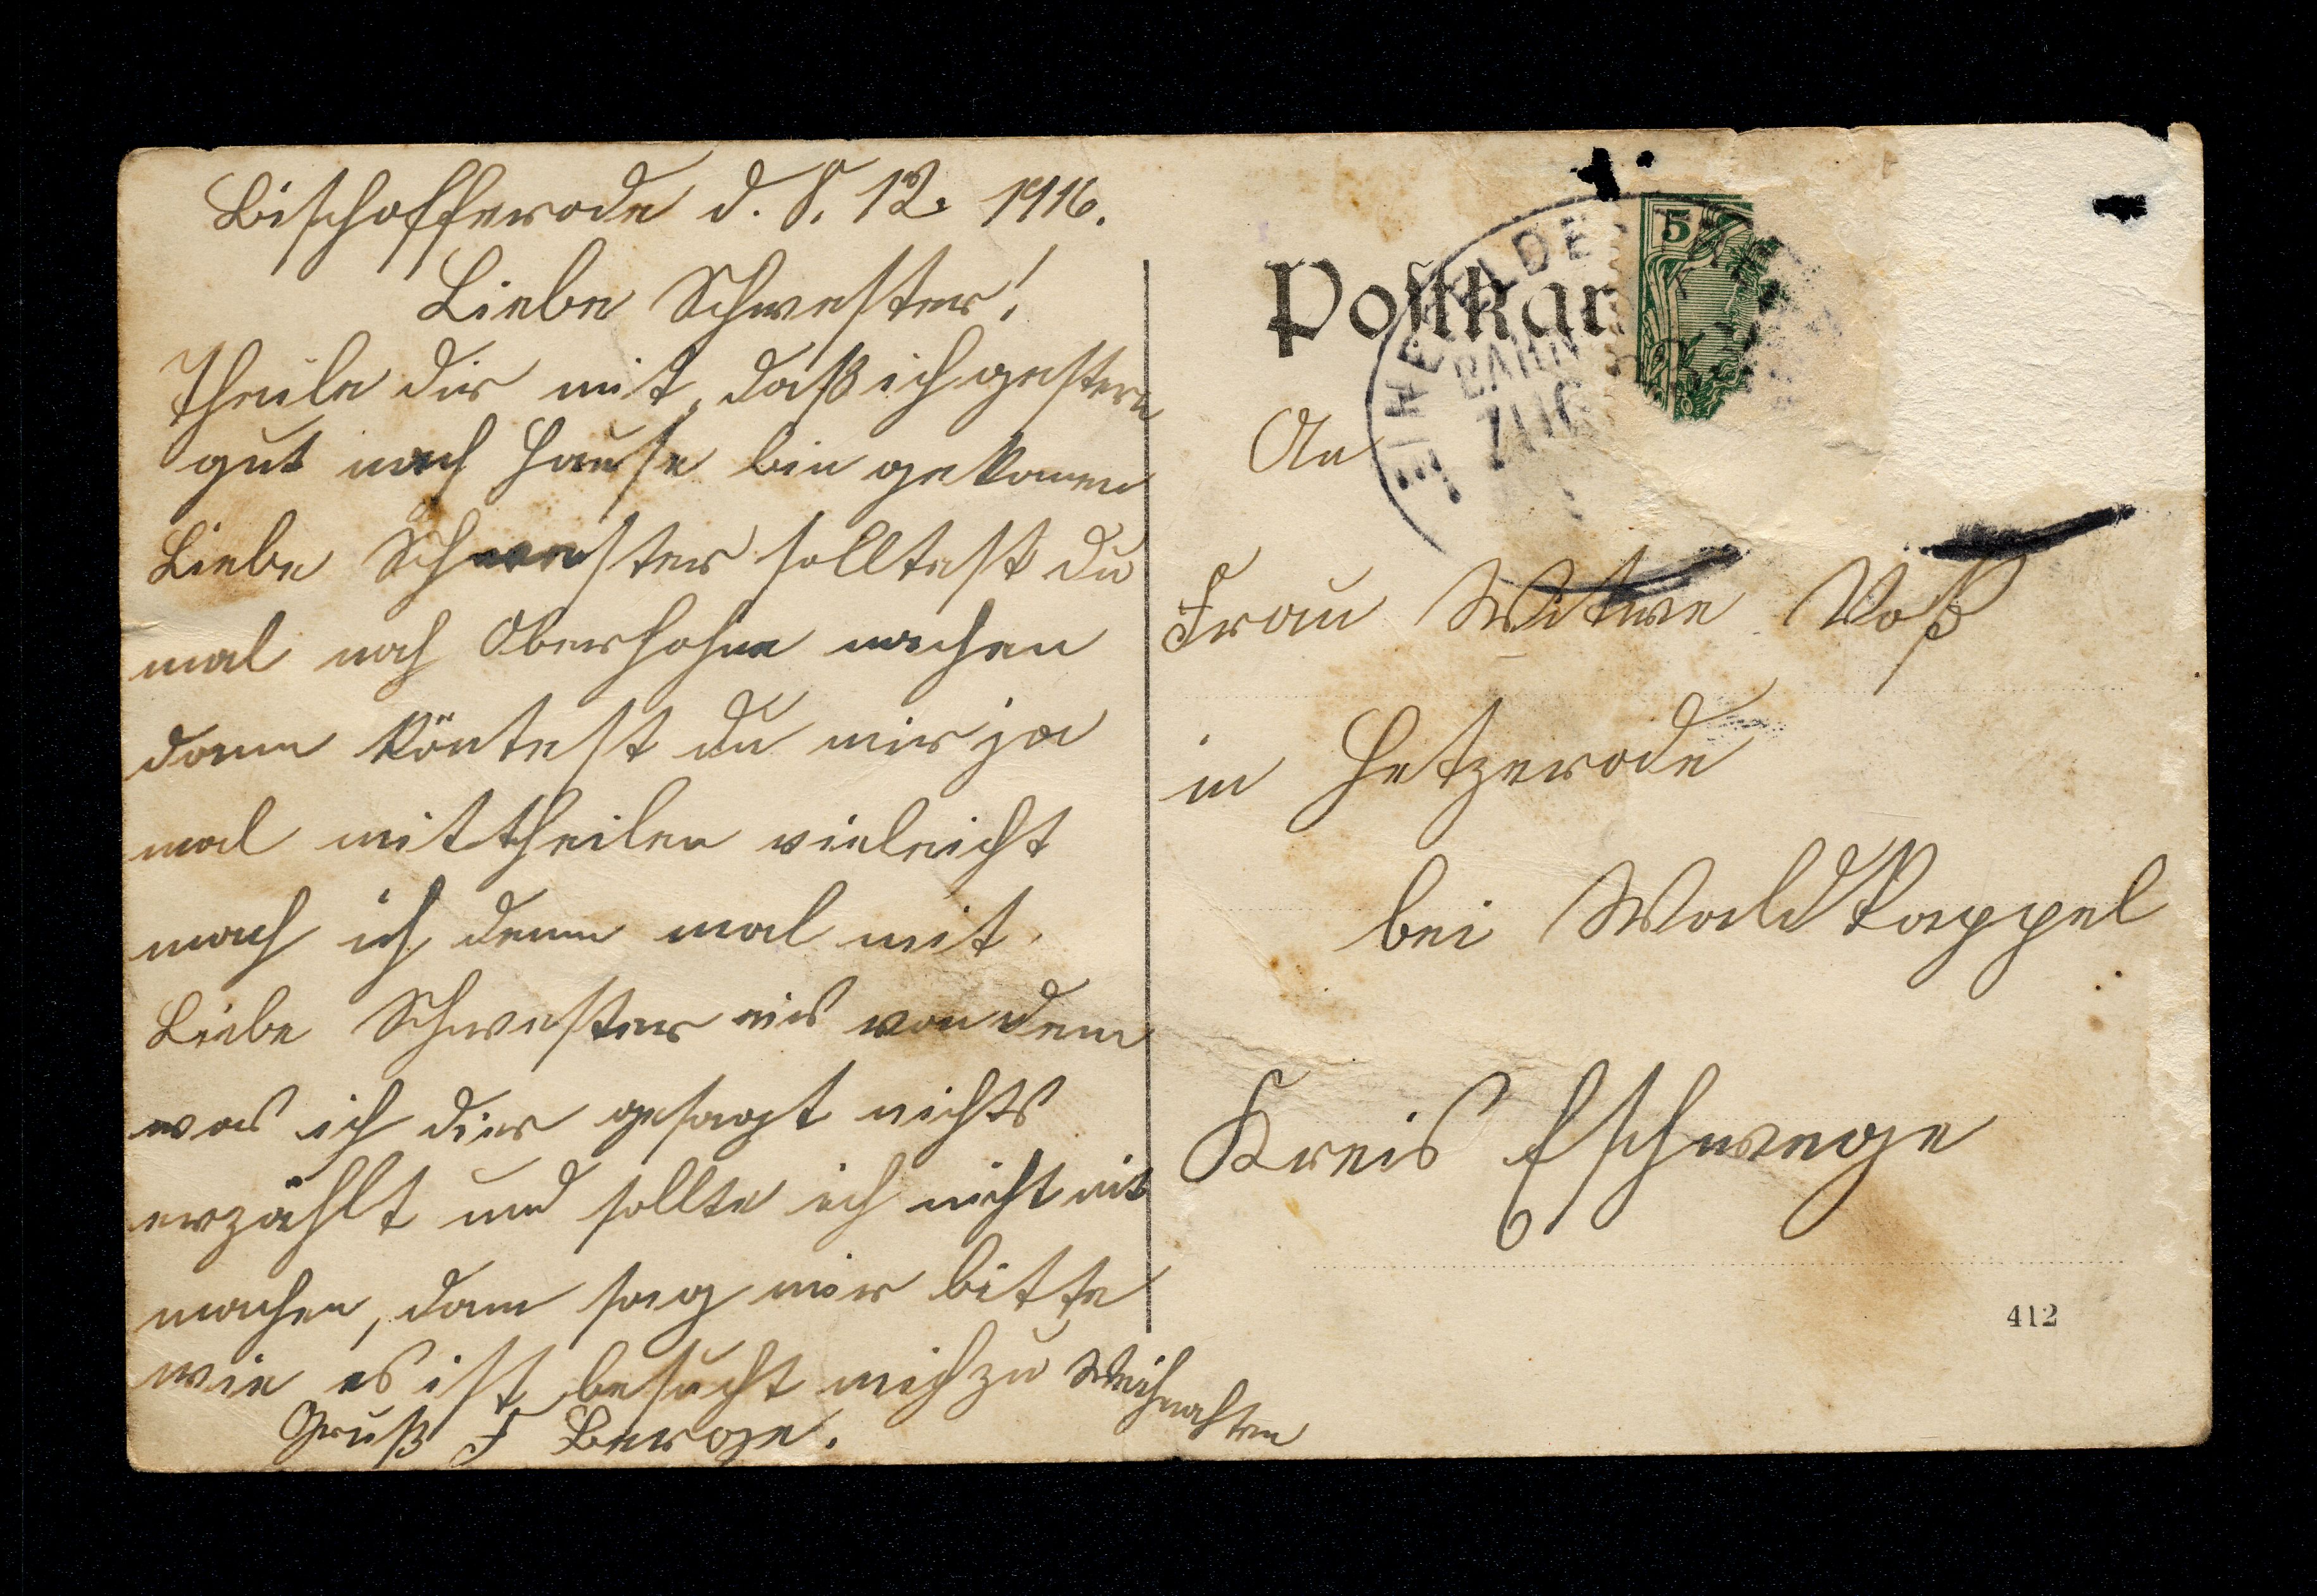 Bischofferode d. 8. 12. 1916.
Liebe Schwester!
Theile dir mit, daß ich gestern
gut nach Hause bin gekomen
Liebe Schwester solltest du
mal nach Oberhohne machen
dann köntest du mir ja
mal mittheilen vieleicht
mach ich denn mal mit.
Liebe Schwester von dem
was ich dier gesagt nichts
erzählt und sollte ich nicht mit
machen, dann sag mir bitte
wie es ist, besucht mich zu Weihnachten
Gruß F Berge.
Postkar
5
BAHN
ZUG
An
Frau Witwe Voß
in Hetzerode
bei Waldkappel
Kreis Eschwege
412